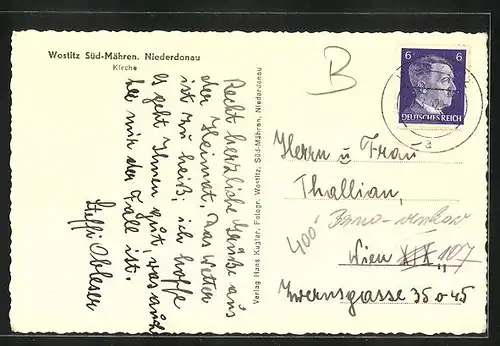 Wostitz Süd-Mähren. Niederdonau
Kirche
Recht herzliche Grüße aus
der Heimat. Das Wetter
ist zu heiß; ich hoffe
es geht Ihnen gut, was auch
bei mir der Fall ist.
Steffi
Verlag Hans Kugler, Fotogr. Wostitz, Süd-Mähren, Niederdonau
B
6 6
DEUTSCHES REICH
a
Herrn u Frau
Thallian,
400
Wien XIX, 107
35